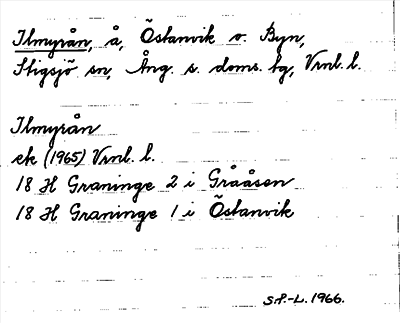 Ilmyrån, å, Östanvik o. Byn,
Stigsjö sn, Ång. s. doms. tg, Vrnl. l.
Ilmyrån
ek (1965) Vrnl. l.
18 H Graninge 2 i Grååsen
18 H Graninge 1 i Östanvik
S.P.-L. 1966.